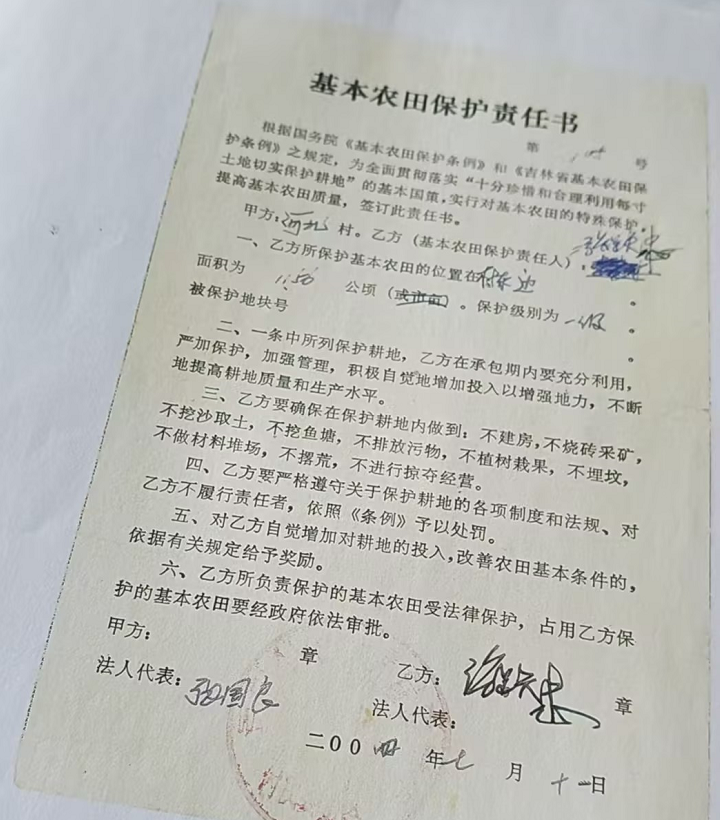 基本农田保护责任书
第 号
根据国务院《基本农田保护条例》和《吉林省基本农田保
护条例》之规定，为全面贯彻落实“十分珍惜和合理利用每寸
土地切实保护耕地”的基本国策，实行对基本农田的特殊保护，
提高基本农田质量，签订此责任书。
甲方：河北 村。乙方（基本农田保护责任人）：
一、乙方所保护基本农田的位置在村东边 。
面积为 1.50 公顷（或市亩）。保护级别为 一级 。
被保护地块号 。
二、一条中所列保护耕地，乙方在承包期内要充分利用，
严加保护，加强管理，积极自觉地增加投入以增强地力，不断
地提高耕地质量和生产水平。
三、乙方要确保在保护耕地内做到：不建房，不烧砖采矿，
不挖沙取土，不挖鱼塘，不排放污物，不植树栽果，不埋坟，
不做材料堆场，不撂荒，不进行掠夺经营。
四、乙方要严格遵守关于保护耕地的各项制度和法规、对
乙方不履行责任者，依照《条例》予以处罚。
五、对乙方自觉增加对耕地的投入，改善农田基本条件的，
依据有关规定给予奖励。
六、乙方所负责保护的基本农田受法律保护，占用乙方保
护的基本农田要经政府依法审批。
甲方： 章 乙方： 章
法人代表：张国良 法人代表：
二00四 年 七 月 十一日